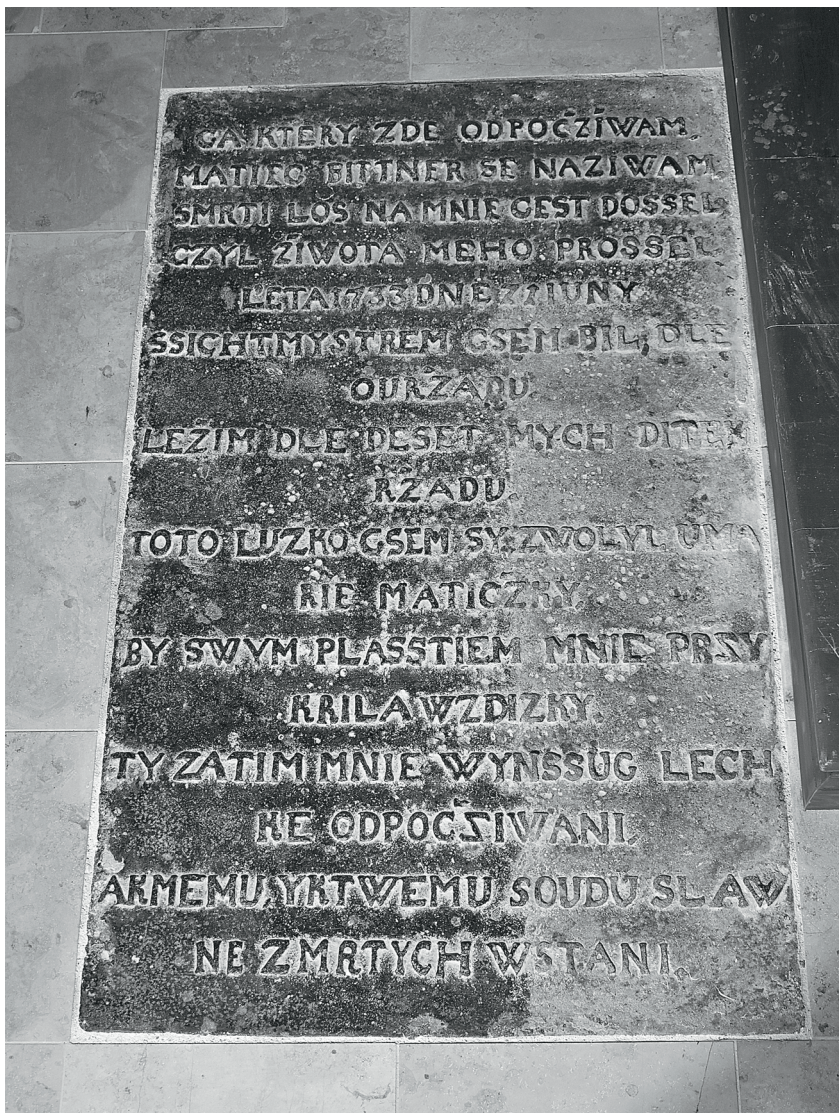 GA KTERY ZDE ODPOCŽIWAM,
MATIEG BITTNER SE NAZIWAM,
SMRTI LOS NA MNIE GEST DOSSEL
CZYL ŽIWOTA MEHO PROSSEL
LETA 1733 DNE IUNY
SSICHTMYSTREM GSEM BIL, DLE
OURZADU.
LEZIM DLE DESET MYCH DITEK
RZADU.
TOTO LUZKO GSEM SY ZWOLYL U MA
RIE MATICZKY.
BY SWYM PLASSTIEM MNIE PRZY
KRILA WZDIZKY.
TY ZATIM MNIE WYNSSUG LECH
KE ODPOCŽIWANI.
AKMEMU, YKTWEMU SOUDU SLAW
NE Z MRTYCH WSTANI.